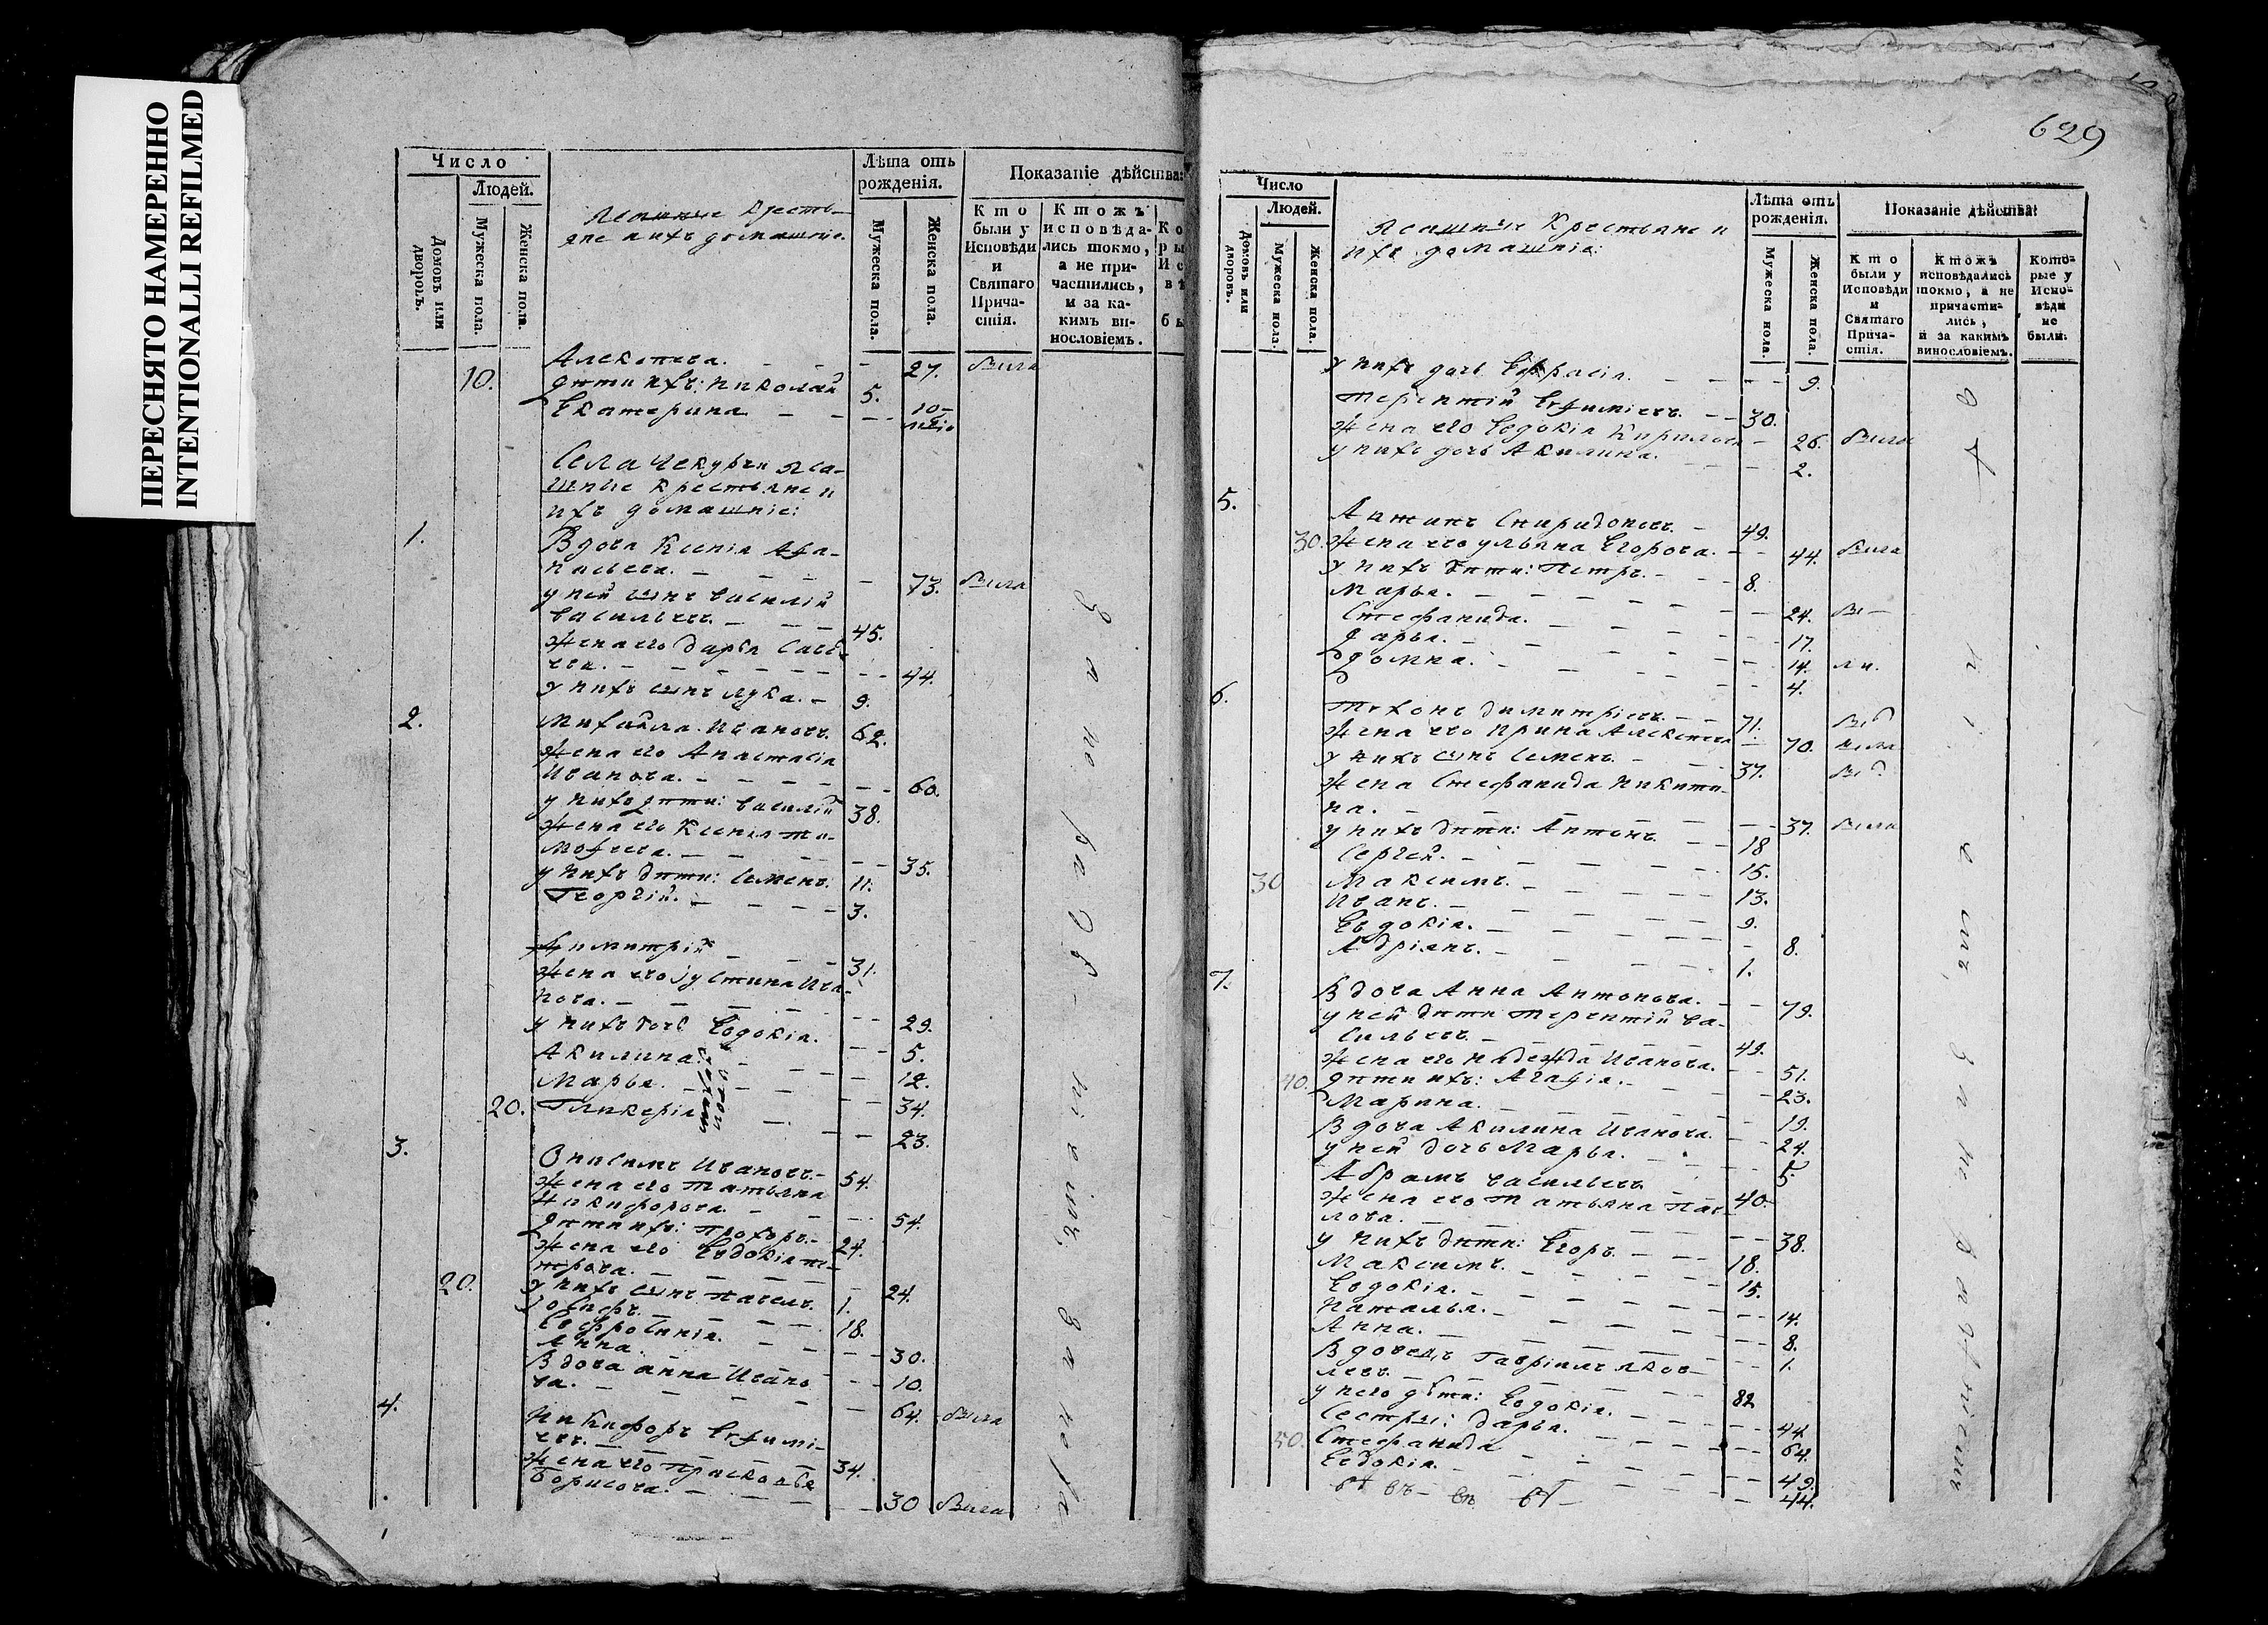 ПЕРЕСНЯТО НАМЕРЕННО
INTENTIONALLI REFILMED
Число
Людей.
Домовъ или дворовъ.
Мужеска пола.
Женска пола.
Ясашные кресть-
яне ихъ домашніе.
Лѣта отъ рожденія.
Мужеска пола.
Женска пола.
Показаніе дѣйства:
Кто были у Исповѣди и Святаго Прича-стія.
Ктожъ исповѣда-лись токмо, а не при-частились, и за ка-кимъ ви-нословіемъ.
Алексѣева. 27. была
10. дѣти ихъ: Николай 5.
Екатерина 10-
Села Чекурчи Яса-
шные крестьяне и
ихъ домашніе:
1. Вдова Ксенія Афа-
насьева. 73. была
у ней сынъ Василій
Васильевъ. 45.
Жена его Дарья Савель
ева. 44.
у нихъ сынъ Лука. 9.
2. Михайла Ивановъ. 62.
Жена его Анастасія
Иванова. 60.
у нихъ дѣти: Василій 38.
Жена его Ксенія Ти-
мофеева. 35.
у нихъ дѣти: Семенъ. 11.
Георгій. 3.
Димитрій 31.
Жена его Іустина Ива-
нова. 29.
у нихъ дочь Евдокія. 5.
Акилина. 12.
Марья. 34.
20. Гликерія 23.
3. Онисимъ Ивановъ. 54.
Жена его Татьяна
Никифорова. 54.
дѣти ихъ: Прохоръ. 24.
Жена его Евдокія Пе-
трова. 24.
20. у нихъ сынъ Павелъ. 1.
Іосифъ. 18.
Евфросинія. 30.
Анна. 10.
Вдова Анна Ивано
ва. 64. была
4. Никифоръ Ефимі-
евъ. 34.
Жена его Прасковья
Борисова. 30 была
629
Число
Людей.
Домовъ или дворовъ.
Мужеска пола.
Женска пола.
Ясашные Крестьяне и
ихъ домашніе:
Лѣта отъ рожденія.
Мужеска пола.
Женска пола.
Показаніе дѣйства:
Кто были у Исповѣди и Святаго Прича-стія.
Ктожъ исповѣдались токмо, а не причасти-лись, и за какимъ винословіемъ.
Кото-рые у Испо-вѣди не были.
у нихъ дочь Евфрасія. 9.
Терентій Ефиміевъ. 30.
Жена его Евдокія Кирилова 26. была
у нихъ дочь Акилина. 2.
5. Антипъ Спиридоновъ. 49.
30. Жена его Ульяна Егорова. 44. была
у нихъ дѣти: Петръ. 8.
Марья. 24.
Стефанида. 17.
Дарья. 14.
Домна. 4.
6. Тихонъ Димитріевъ. 71.
Жена его Ирина Алексѣева 70. была
у нихъ сынъ Семенъ. 37.
Жена Стефанида Никити-
на. 37. была
у нихъ дѣти: Антонъ. 18
Сергей. 15.
30 Максимъ. 13.
Иванъ. 9.
Евдокія. 8.
Адріанъ. 1.
7. Вдова Анна Антонова. 79.
у ней дѣти Терентій Ва-
сильевъ. 49.
Жена его Надежда Иванова. 51.
40. дѣти ихъ: Агафія. 23.
Марина. 19.
Вдова Акилина Иванова. 24.
у ней дочь Марья. 5.
Абрамъ Васильевъ 40.
Жена его Татьяна Пав-
лова. 38.
у нихъ дѣти: Егоръ. 18.
Максимъ. 15.
Евдокія. 14.
Наталья. 8.
Анна. 1.
Вдовецъ Гавріилъ Яков-
левъ. 82
у него дѣти: Евдокія. 44.
Сестры: Дарья. 64.
50. Стефанида 49.
Евдокія. 44.